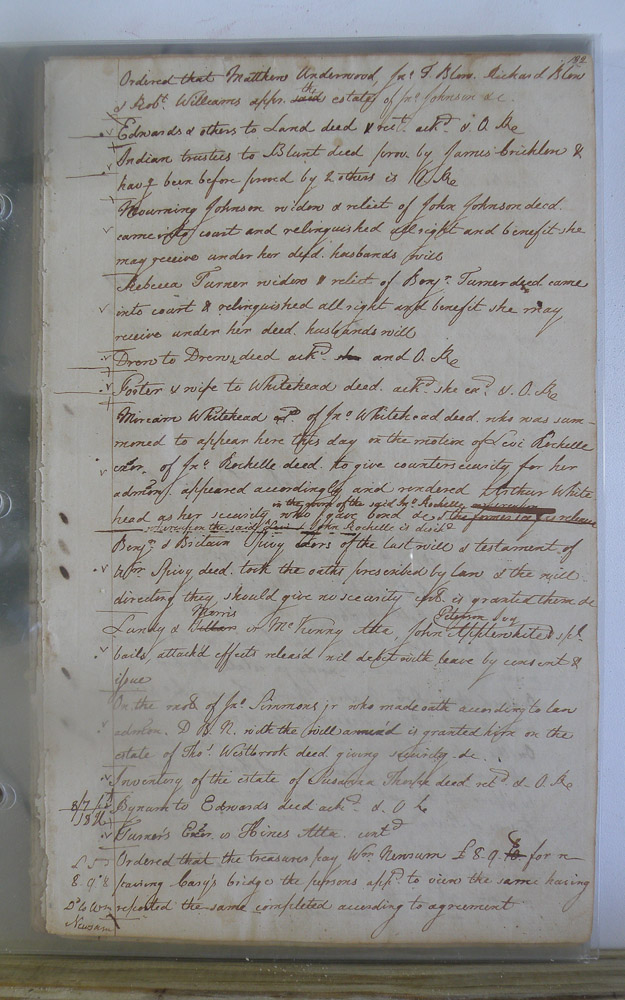 Ordered that Matthew Underwood, Jno. T. Blow, Richard Blow
& Robt. Williams appr. the estate of Jno Johnson &c.
Edwards & others to Land deed & rect. ackd. & O. Re
Indian trustees to Blunt deed prov. by James Crichlow &
havg. been before proved by 2 others is O. Re
Mourning Johnson widow & relict of John Johnson deed.
came into court and relinquished all right and benefit she
may receive under her decd. husbands will
Rebecca Turner widow & relict of Benja. Turner deed came
into court & relinquished all right and benefit she may
receive under her deed. husbands will
Drew to Drew, deed ackd. and O. Re
Foster & wife to Whitehead deed. ackd. she exd. & O. Re
Miriam Whitehead of Jno Whitehead deed. who was sum-
moned to appear here this day on the motion of Levi Rochelle
exor. of Jno. Rochelle deed. to give countersecurity for her
admon. appeared accordingly and rendered Arthur White
in the room of the said Jno. Rochelle
head as her security who gave bond &c.
whereupon the said John Rochelle is discd.
Benja. & Britain Spivy Exors of the last will & testament of
Wm. Spivy deed. took the oaths prescribed by law & the will
directing they should give no security is granted them &c
Morris Peterson
Lundy & vs McKenny Atta, John Applewhite spl.
bail, attach'd effects releas'd nil debit with leave by consent &
issue
On the mo of Jno. Simmons jr who made oath according to law
admon. D B. N. with the will annex'd is granted him on the
estate of Thos. Westbrook deed giving security &c.
Inventory of the estate of Susanna Thorpe deed retd. & O. Re
Bynum to Edwards deed ackd. & O
Turner's Exor. vs Hines Atta. contd
Ordered that the treasurer pay Wm. Newsum £8.9.8 for re-
paving Cary's bridge the persons appd. to view the same having
reported the same completed according to agreement
8.9.8
Do. to Wm
Newsum